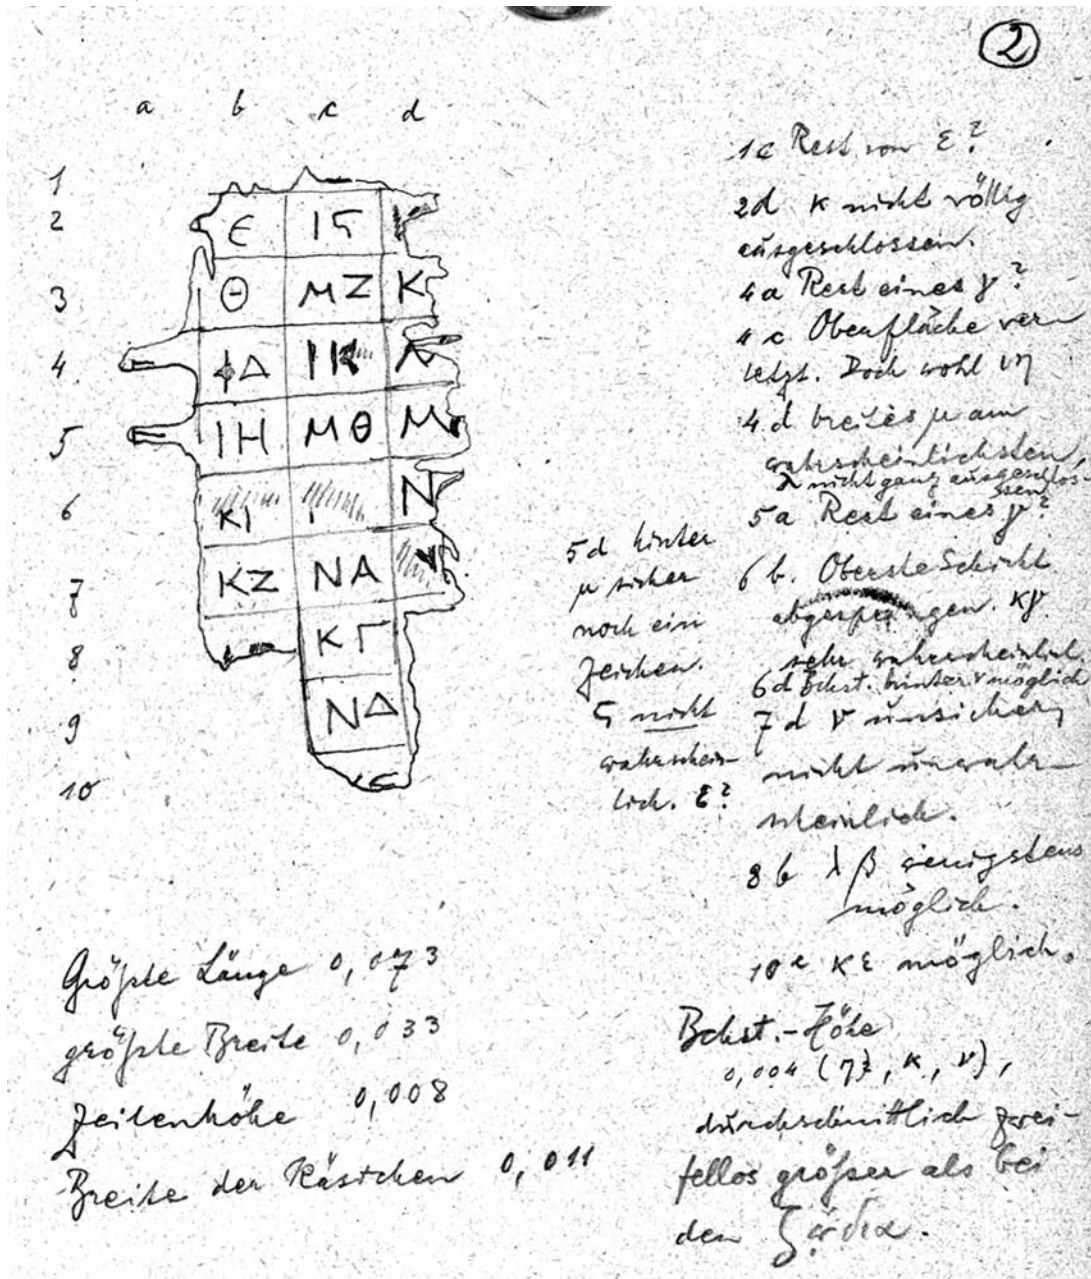 2
a b c d
1
2 Є ΙϚ
3 Θ ΜΖ Κ
4 ΙΔ ΙΗ
5 ΙΗ ΜΘ Μ
6 ΚΙ Ν
7 ΚΖ ΝΑ Ν
8 ΚΓ
9 ΝΔ
10
1c Rest von ε?
2d κ nicht völlig
ausgeschlossen.
4a Rest eines γ?
4c Oberfläche ver-
letzt. Doch wohl νη
4d breites μ am
wahrscheinlichsten,
λ nicht ganz ausgeschlos-
ssen
5a Rest eines γ?
6b. Oberste Schicht
abgesprungen. κγ
sehr wahrscheinlich.
6d Bchst. hinter ν möglich
7d ν unsicher,
nicht unwahr-
scheinlich.
8b λβ wenigstens
möglich.
10c κε möglich.
5d hinter
μ sicher
noch ein
Zeichen.
ϛ nicht
wahrschein-
lich. ε?
Größte Länge 0,073
größte Breite 0,033
Zeilenhöhe 0,008
Breite der Kästchen 0,011
Bchst.-Höhe
0,004 (η, κ, ν),
durchschnittlich zwei-
fellos größer als bei
den ζῴδια.